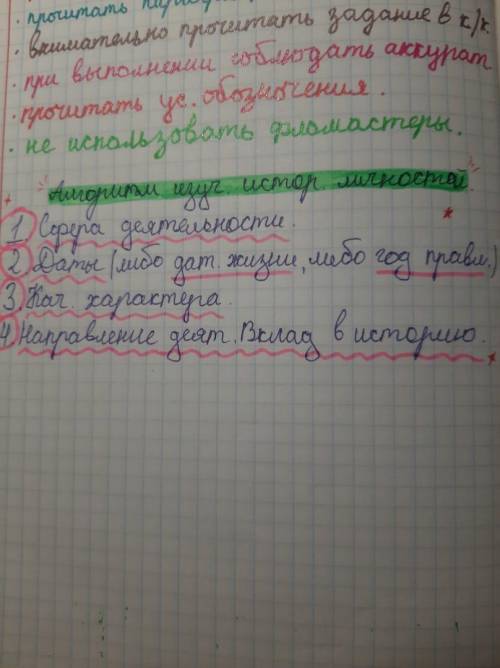 · прочитать
· внимательно прочитать задание в к/к.
· при выполнении соблюдать аккурат
· прочитать ус. обозначения.
· не использовать фломастеры.
Алгоритм изуч. истор. личностей.
1 Сфера деятельности.
2 Даты (либо дат. жизни, либо год правл.)
3 Кач. характера.
4 Направление деят. Вклад в историю.